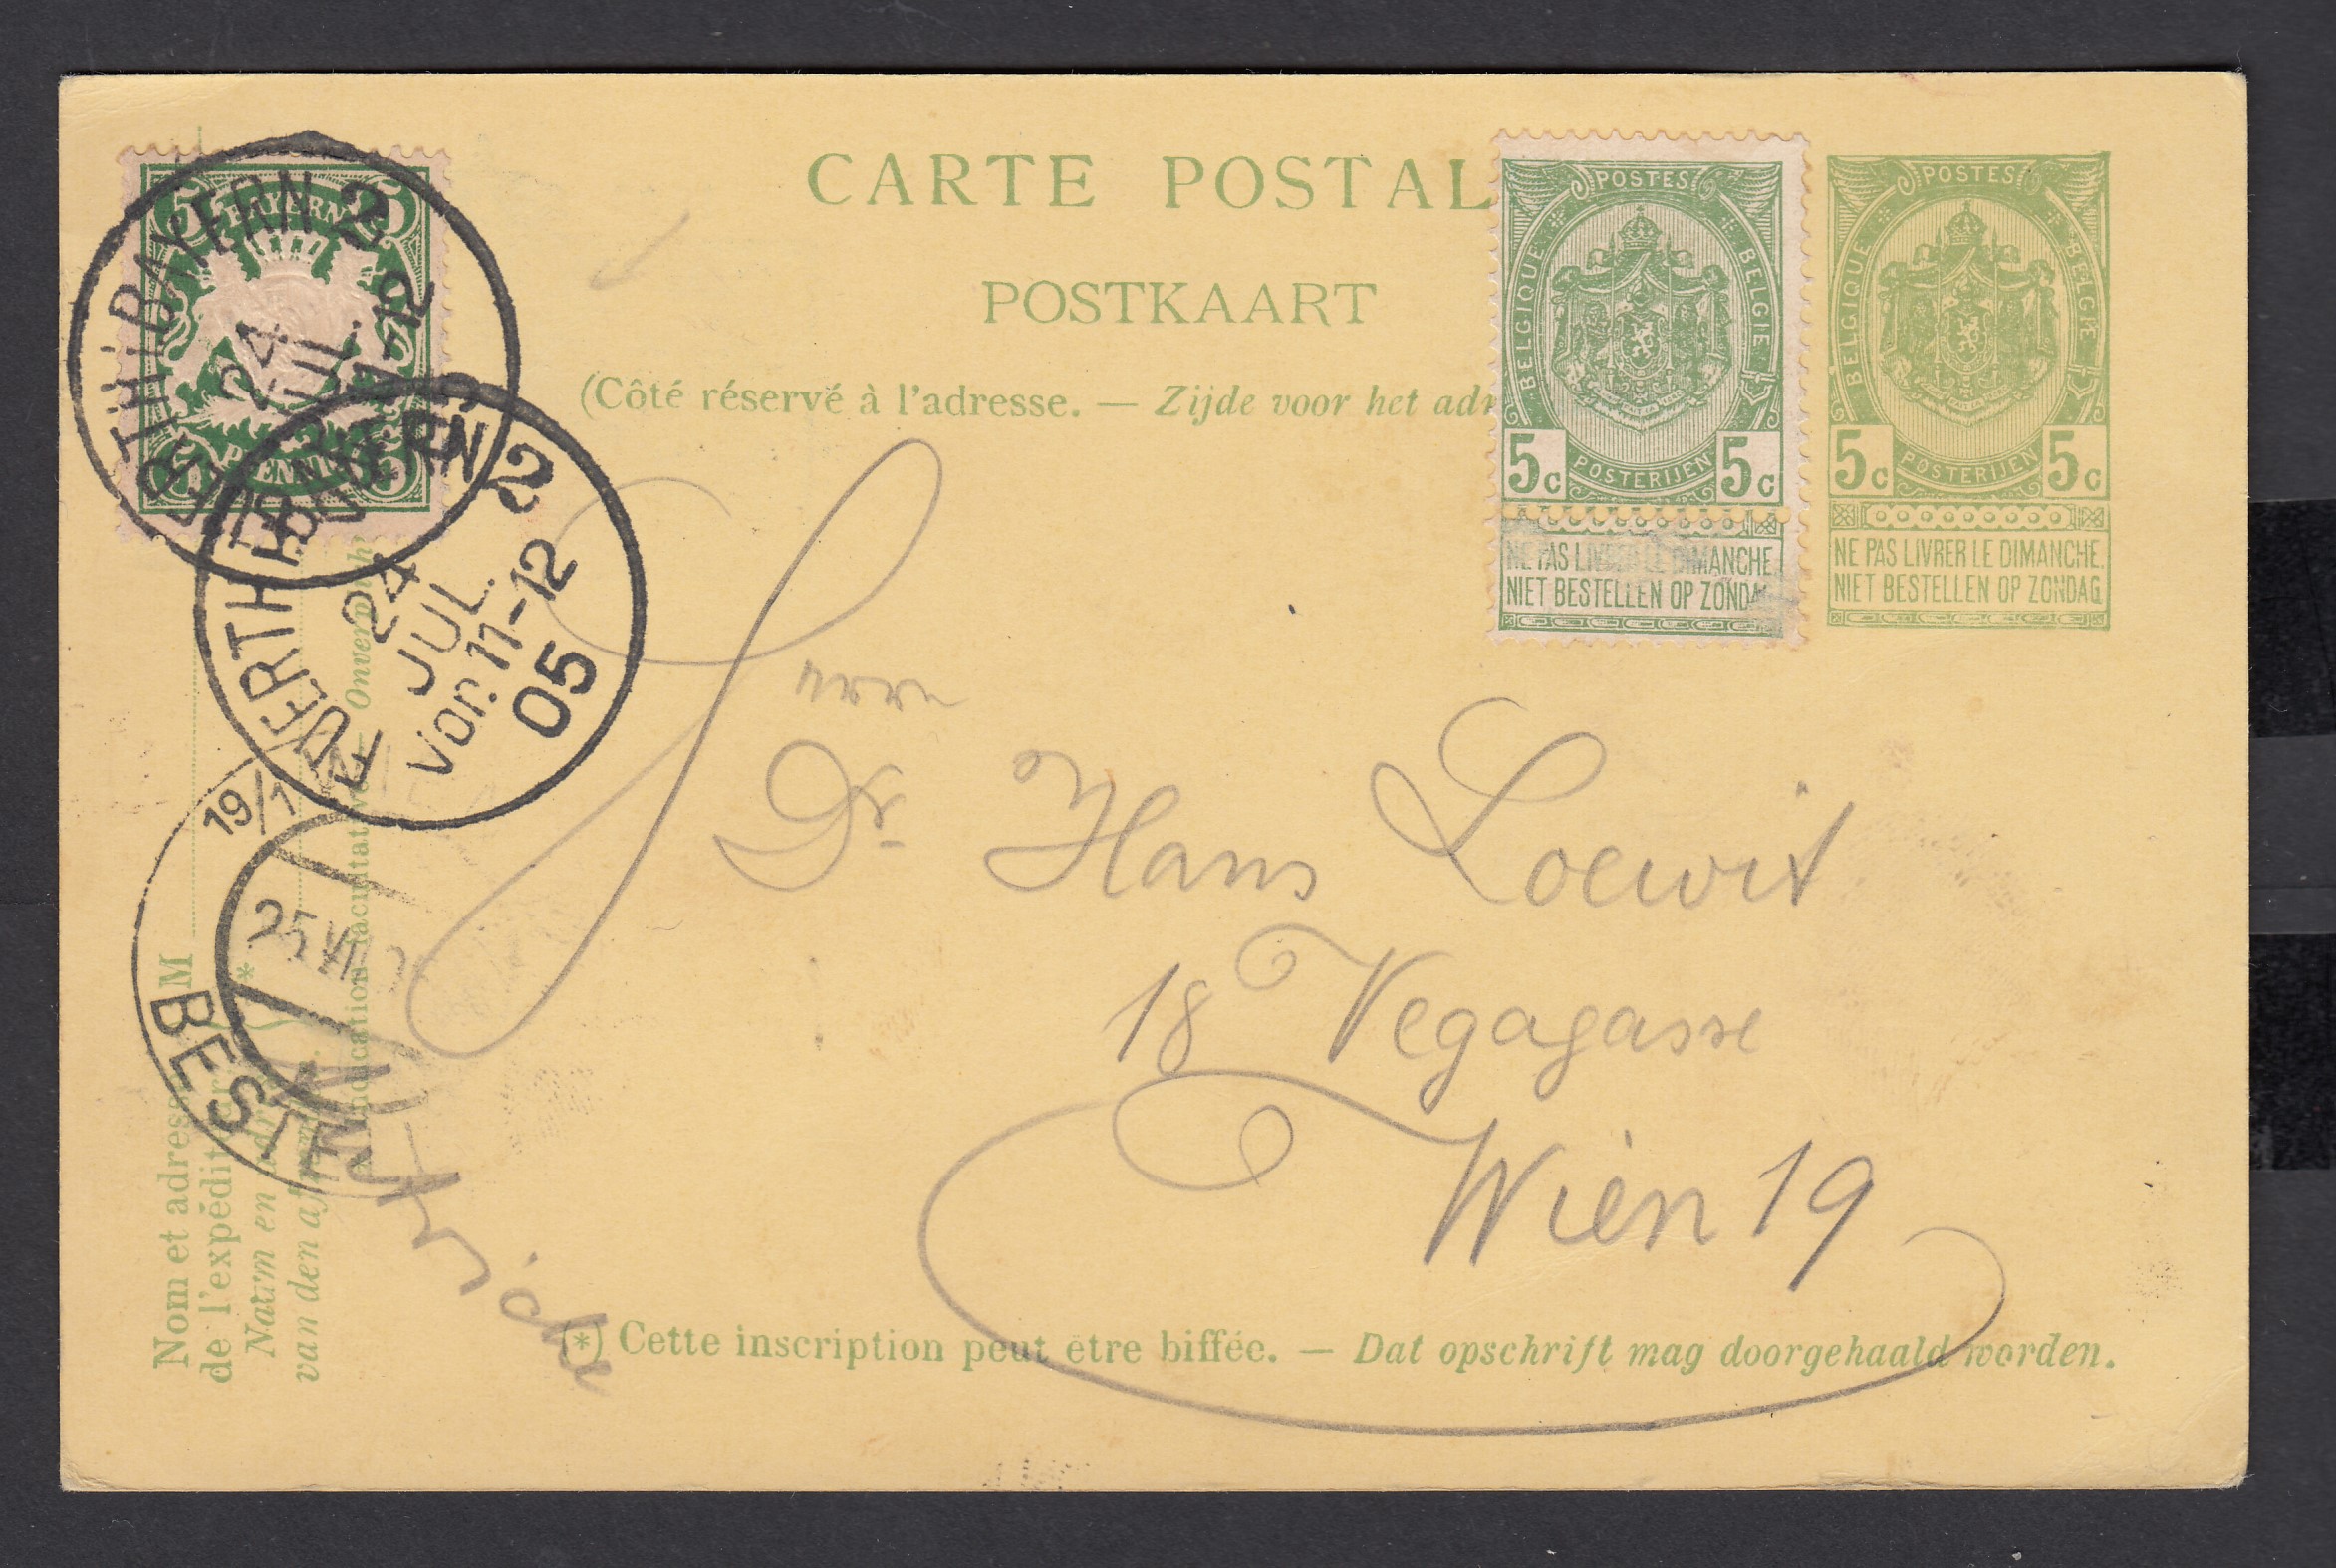 CARTE POSTAL
POSTKAART
(Côté réservé à l'adresse. — Zijde voor het adr
5 BAYERN 5
PFENNIG
POSTES
BELGIQUE BELGIE
5c POSTERIJEN 5c
NE PAS LIVRER LE DIMANCHE
NIET BESTELLEN OP ZONDAG
POSTES
BELGIQUE BELGIE
5c POSTERIJEN 5c
NE PAS LIVRER LE DIMANCHE.
NIET BESTELLEN OP ZONDAG
FUERTH I. BAYERN 2
24
JUL.
FUERTH I. BAYERN 2
24
JUL.
Vor. 11-12
05
19/1
25 VII
BESTELLT
Herrn
Dr. Hans Loewit
18 Vegagasse
Wien 19
Nom et adresse M
de l'expéditeur
Naam en adres
van den afzender.
Indication facultative — Onverplicht
(*) Cette inscription peut être biffée. — Dat opschrift mag doorgehaald worden.